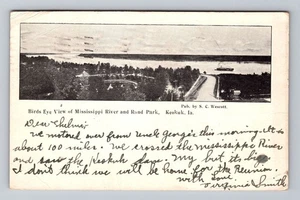 Birds Eye View of Mississippi River and Rond Park, Keokuk, Ia.
Pub. by S. C. Westcott
Dear Thelma:
We motored over from Uncle George's this morning. It is
about 100 miles. We crossed the mississippi River
and saw the Keokuk dam. My but its big
I don't think we will be home for the Reunion.
with love
Virginia Smith